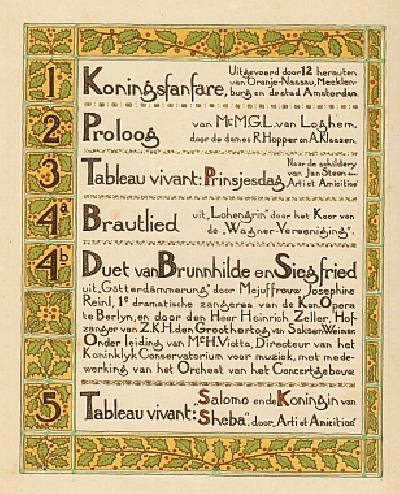 1 Koningsfanfare, Uitgevoerd door 12 herauten
van Oranje-Nassau, Mecklen-
burg en de stad Amsterdam.
2 Proloog van Mr M.G.L. van Loghem,
door de dames R. Hopper en A. Klassen.
3 Tableau vivant: Prinsjesdag Naar de schilderij
van Jan Steen
Arti et Amicitiae
4a Brautlied uit „Lohengrin" door het Koor van
de „Wagner-Vereeniging".
4b Duet van Brunnhilde en Siegfried
uit „Götterdämmerung," door Mejuffrouw Josephine
Reinl, 1e dramatische zangeres van de Kon. Opera
te Berlyn, en door den Heer Heinrich Zeller, Hof-
zanger van Z.K.H. den Groothertog van Saksen Weimar
Onder leiding van Mr H. Viotta, Directeur van het
Koninklyk Conservatorium voor muziek, met mede-
werking van het Orchest van het Concertgebouw
5 Tableau vivant: „Salomo en de Koningin van
Sheba". door „Arti et Amicitiae"